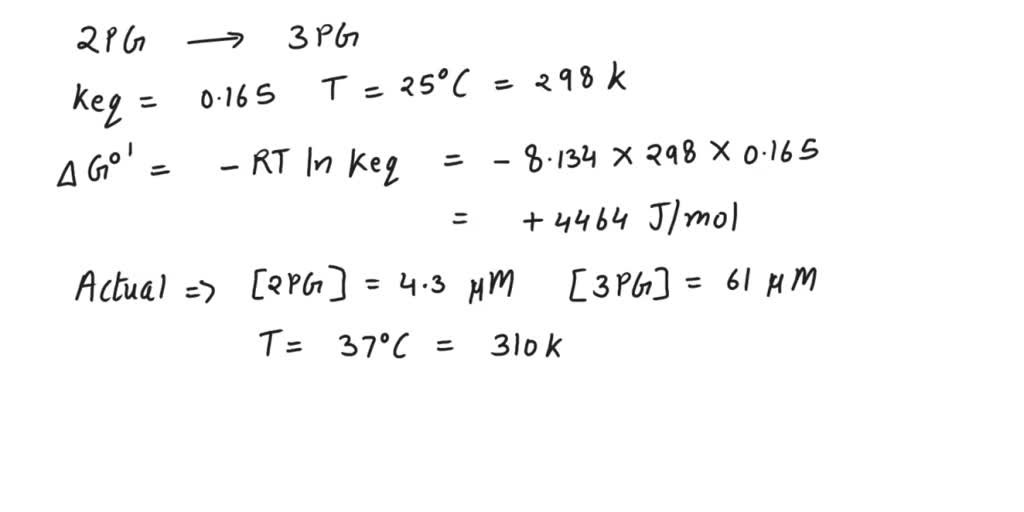 2PG → 3PG
keq = 0.165 T = 25°C = 298 k
ΔG°' = - RT ln keq = - 8.134 × 298 × 0.165
= + 4464 J/mol
Actual => [2PG] = 4.3 μM [3PG] = 61 μM
T = 37°C = 310k